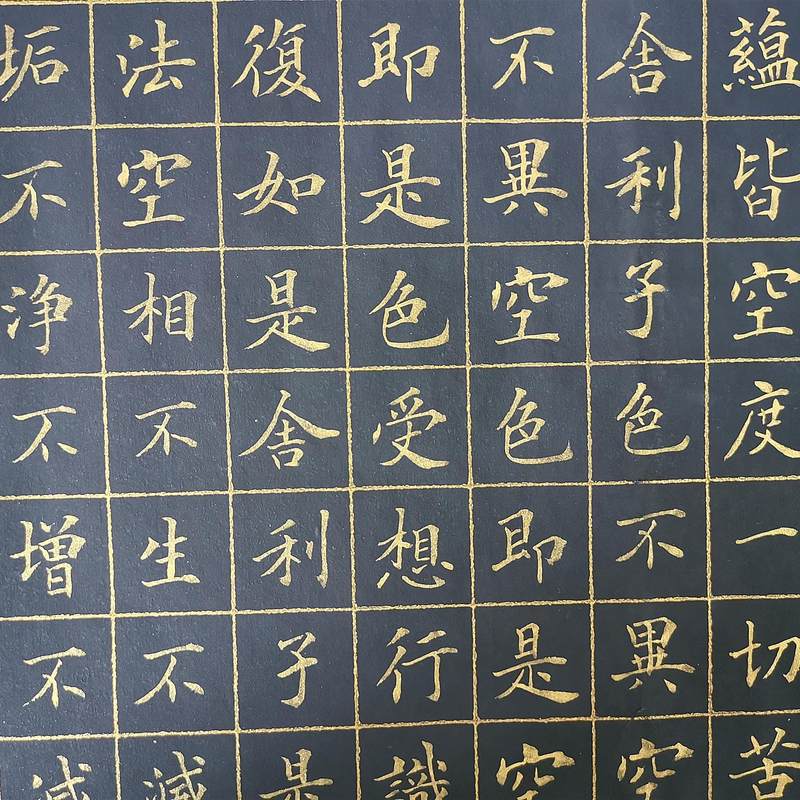 蘊皆空度一切苦
舍利子色不異空
不異空色即是空
即是色受想行識
復如是舍利子是
法空相不生不滅
垢不浄不增不減